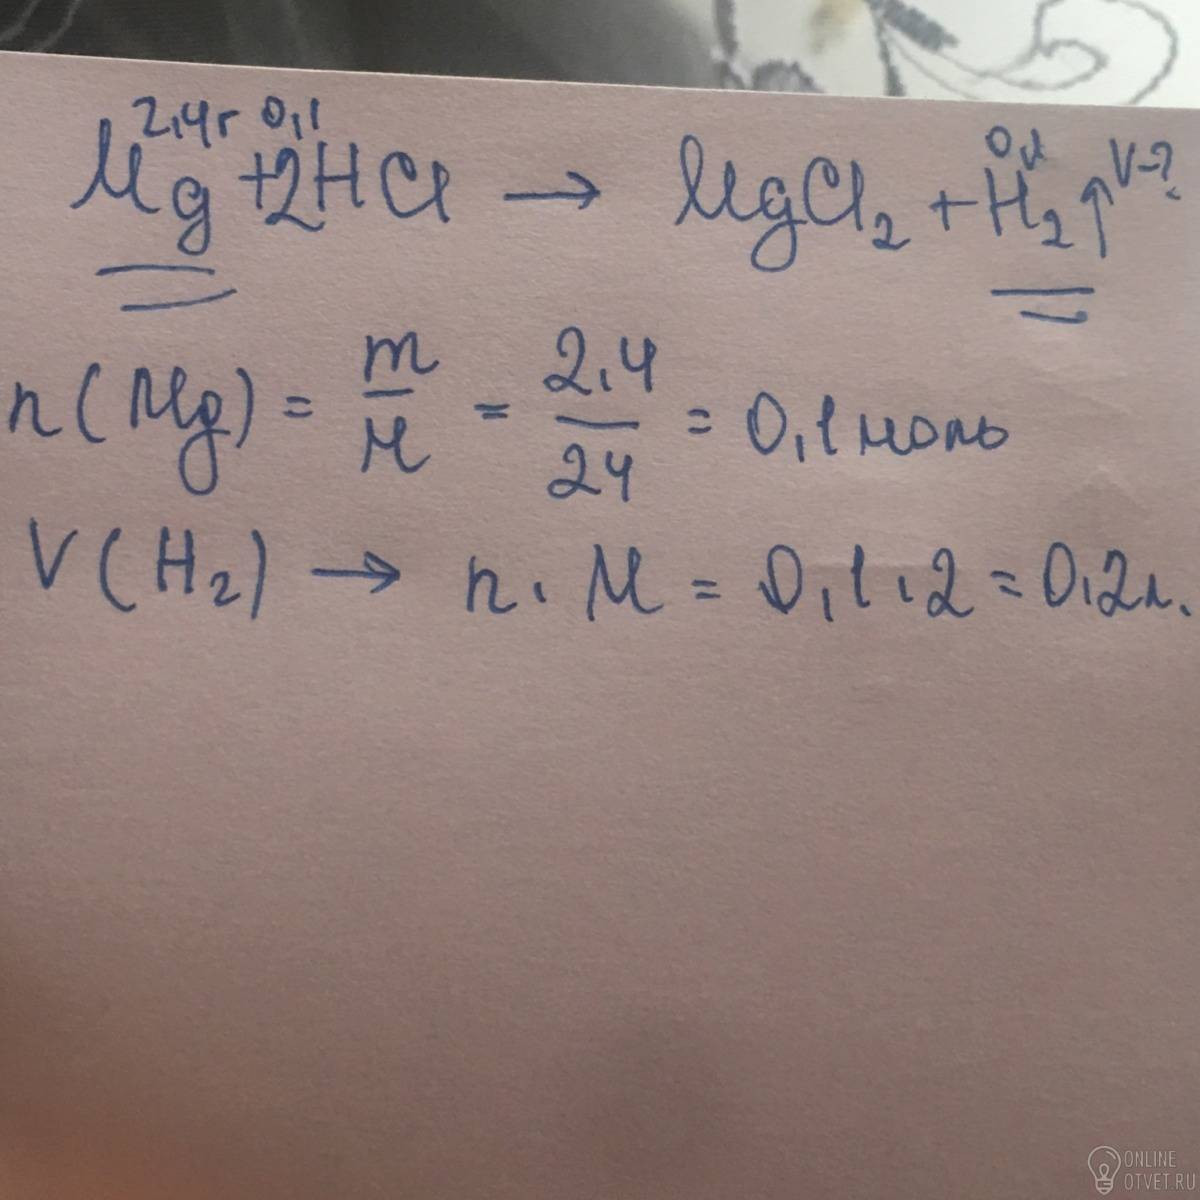 2,4г 0,1 0,1 V-?
Mg + 2HCl → MgCl2 + H2↑
n(Mg) = m/M = 2,4/24 = 0,1 моль
V(H2) → n · M = 0,1 · 2 = 0,2л.
ONLINE
OTVET.RU